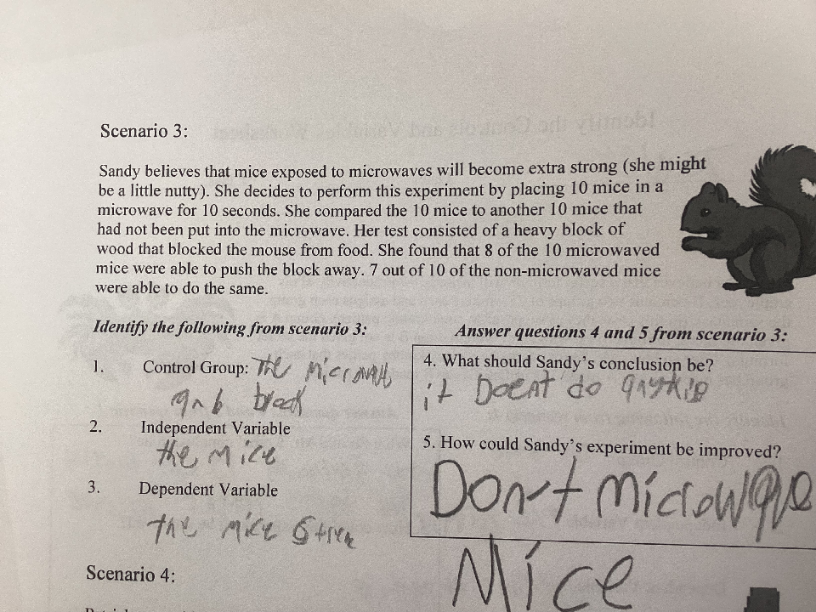 Scenario 3:
Sandy believes that mice exposed to microwaves will become extra strong (she might
be a little nutty). She decides to perform this experiment by placing 10 mice in a
microwave for 10 seconds. She compared the 10 mice to another 10 mice that
had not been put into the microwave. Her test consisted of a heavy block of
wood that blocked the mouse from food. She found that 8 of the 10 microwaved
mice were able to push the block away. 7 out of 10 of the non-microwaved mice
were able to do the same.
Identify the following from scenario 3:
1. Control Group: The
2. Independent Variable
the mice
3. Dependent Variable
the mice
Answer questions 4 and 5 from scenario 3:
4. What should Sandy's conclusion be?
it Doent do
5. How could Sandy's experiment be improved?
Don't microwave
Mice
Scenario 4: